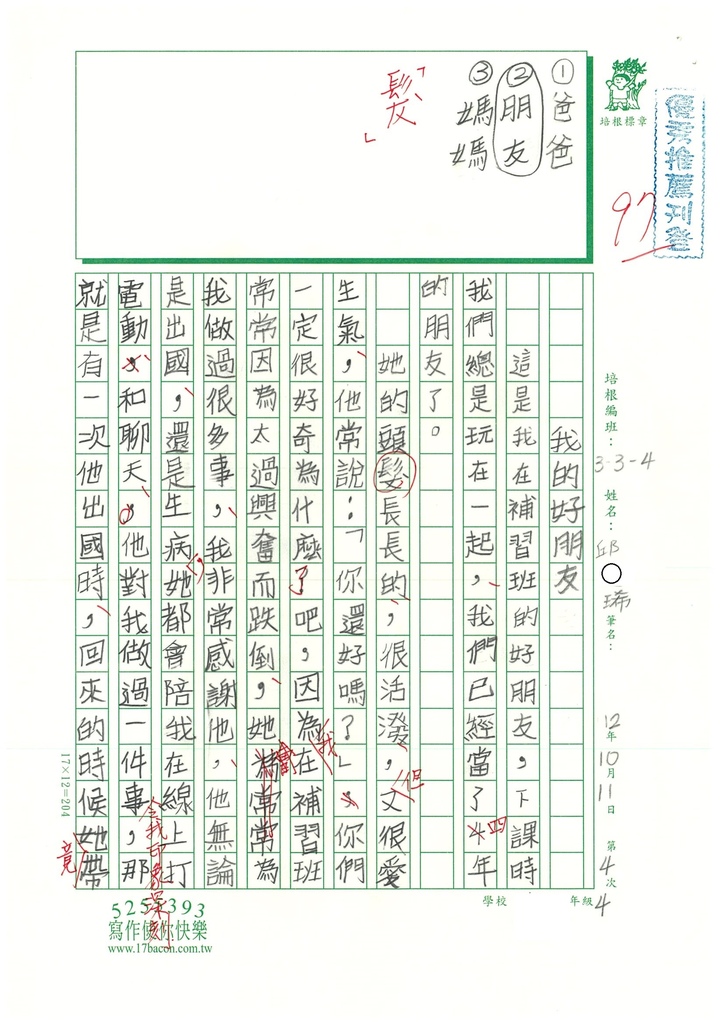 優秀推薦刊登
97
培根標章
①爸爸
②朋友
③媽媽
「髮」
培根編班：3-3-4
姓名：邱○琋
筆名：
12年10月11日 第4次
4年級
學校
我的好朋友
這是我在補習班的好朋友，下課時
我們總是玩在一起，我們已經當了4年
四
的朋友了。
她的頭髮長長的，很活潑，又很愛
但
生氣，他常說：「你還好嗎？」，你們
一定很好奇為什麼了吧，因為在補習班
我
常常因為太過興奮而跌倒，她常常為
我做過很多事，我非常感謝他，他無論
是出國，還是生病她都會陪我在線上打
電動，和聊天。他對我做過一件事，那
令我印象深刻
就是有一次他出國時，回來的時候她帶
竟
17×12=204
5255393
寫作使你快樂
www.17bacon.com.tw